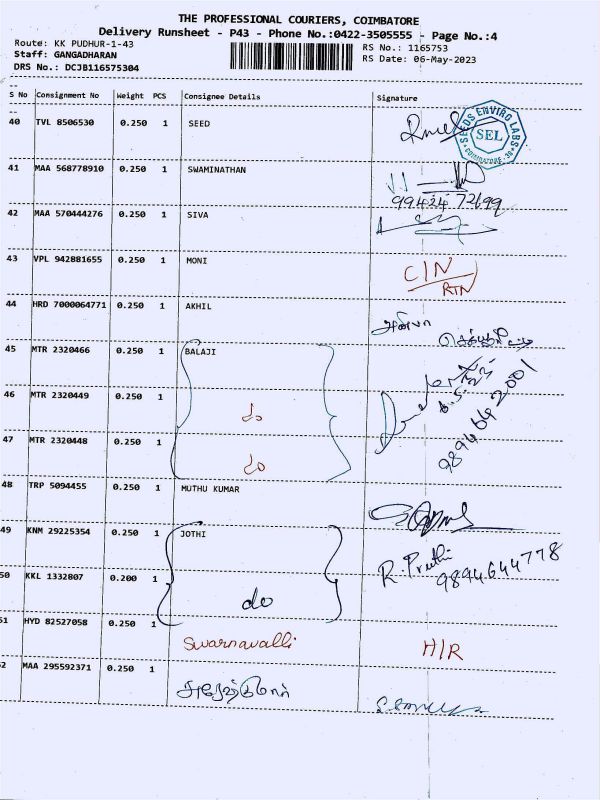 THE PROFESSIONAL COURIERS, COIMBATORE
Delivery Runsheet - P43 - Phone No.:0422-3505555 - Page No.:4
Route: KK PUDHUR-1-43 RS No.: 1165753
Staff: GANGADHARAN RS Date: 06-May-2023
DRS No.: DCJB116575304
--
S No Consignment No Weight PCS Consignee Details Signature
--
40 TVL 8506530 0.250 1 SEED
SEEDS ENVIRO LABS
SEL
COIMBATORE
41 MAA 568778910 0.250 1 SWAMINATHAN
99424 72699
42 MAA 570444276 0.250 1 SIVA
43 VPL 942881655 0.250 1 MONI CIN
RTN
44 HRD 7000064771 0.250 1 AKHIL
45 MTR 2320466 0.250 1 BALAJI
46 MTR 2320449 0.250 1 do
9894642001
47 MTR 2320448 0.250 1 do
48 TRP 5094455 0.250 1 MUTHU KUMAR
49 KNM 29225354 0.250 1 JOTHI
R. Preethi
9894644778
50 KKL 1332807 0.200 1 do
51 HYD 82527058 0.250 1 Swarnavalli H/R
52 MAA 295592371 0.250 1